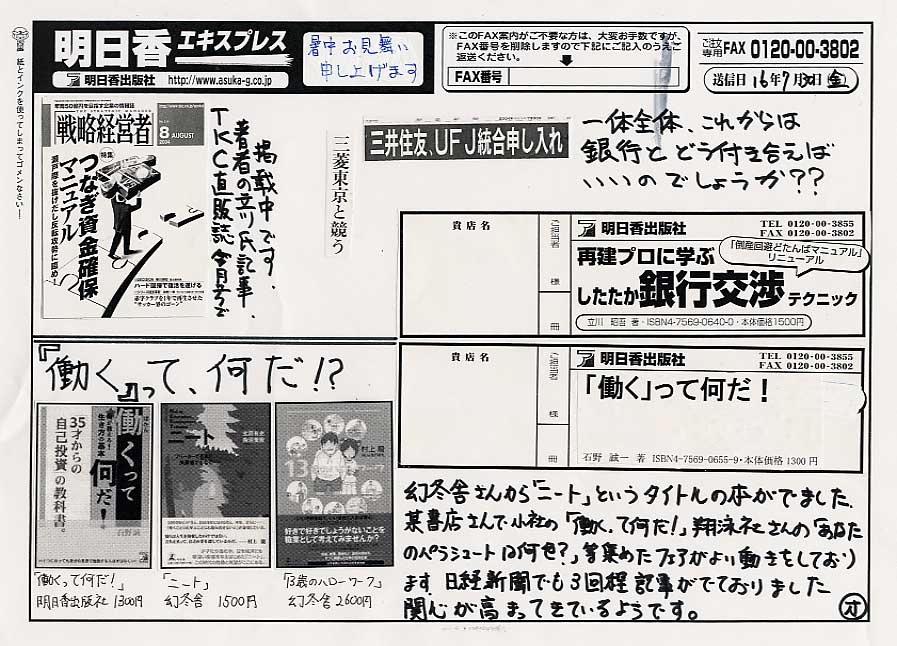 紙とインクを使ってしまってゴメンなさい!
明日香エキスプレス
明日香出版社 http://www.asuka-g.co.jp/
暑中お見舞い
申し上げます
※このFAX案内がご不要な方は、大変お手数ですが、
FAX番号を削除しますので下記にご記入のうえご
返送ください。
FAX番号
ご注文専用 FAX 0120-00-3802
送信日 16年7月30日(金)
戦略経営者
8 AUGUST
2004
特集
つなぎ資金確保
マニュアル
ハード面接で復活を遂げる
赤字クラブを1年で再生させた
"サッカー界のゴーン"
掲載中です。
著者の立川氏記事、
TKC直販誌 今月号で
三菱東京と競う
三井住友、UFJ統合申し入れ
一体全体、これからは
銀行とどう付き合えば
いいのでしょうか??
貴店名
ご担当者
様
冊
明日香出版社
TEL 0120-00-3855
FAX 0120-00-3802
「倒産回避どたんばマニュアル」
リニューアル
再建プロに学ぶ
したたか銀行交渉テクニック
立川 昭吾 著・ISBN4-7569-0640-0・本体価格1500円
『働く』って、何だ!?
働くって
何だ!
35才からの
自己投資の教科書。
石野誠一
ニート
村上龍
13
好きで好きでしょうがないことを
職業として考えてみませんか?
「働くって何だ!」
明日香出版社 1300円
「ニート」
幻冬舎 1500円
「13歳のハローワーク」
幻冬舎 2600円
貴店名
ご担当者
様
冊
明日香出版社
TEL 0120-00-3855
FAX 0120-00-3802
「働く」って何だ!
石野 誠一 著 ISBN4-7569-0655-9・本体価格1300円
幻冬舎さんから「ニート」というタイトルの本がでました。
某書店さんで小社の「働くって何だ!」翔泳社さんの「あなた
のパラシュートは何色?」等集めたフェアがより動きをしており
ます。日経新聞でも3回程記事がでておりました
関心が高まってきているようです。
オ